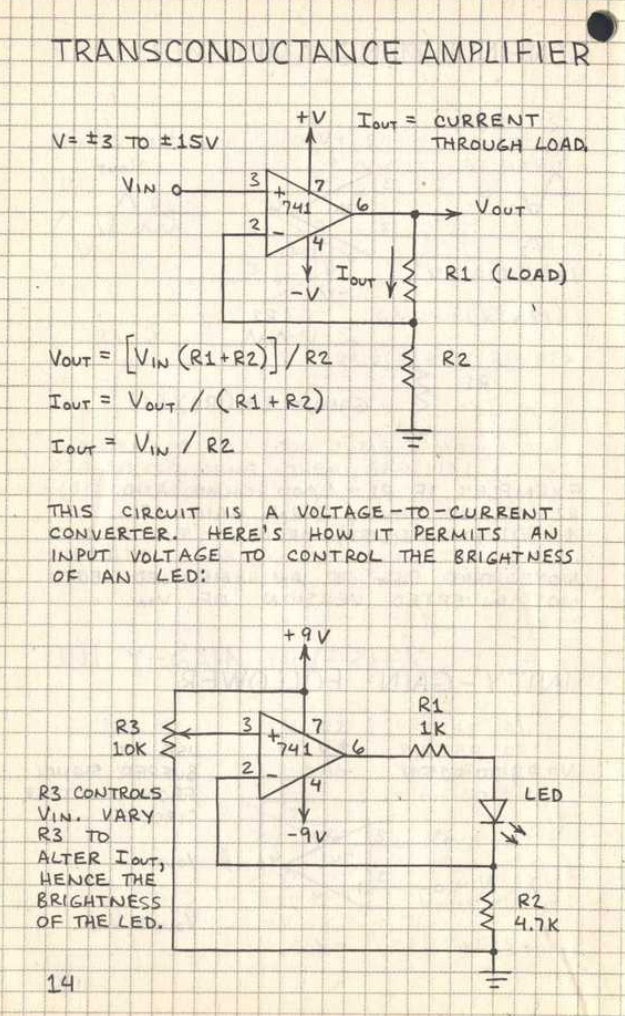 TRANSCONDUCTANCE AMPLIFIER
V = ±3 TO ±15V
+V
IOUT = CURRENT
THROUGH LOAD.
VIN
3
+
7
741
6
VOUT
2
-
4
-V
IOUT
R1 (LOAD)
R2
VOUT = [VIN (R1+R2)] / R2
IOUT = VOUT / (R1 + R2)
IOUT = VIN / R2
THIS CIRCUIT IS A VOLTAGE-TO-CURRENT
CONVERTER. HERE'S HOW IT PERMITS AN
INPUT VOLTAGE TO CONTROL THE BRIGHTNESS
OF AN LED:
+9V
R3
10K
3
+
7
741
6
2
-
4
-9V
R1
1K
LED
R2
4.7K
R3 CONTROLS
VIN. VARY
R3 TO
ALTER IOUT,
HENCE THE
BRIGHTNESS
OF THE LED.
14